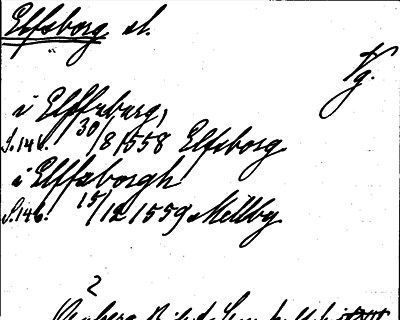 Elfsborg sl.
Vg.
i Elffzburg,
S. 146. 30/8 1558 Elfsborg
i Elffzborgh
S. 146. 15/12 1559 Mellby
2